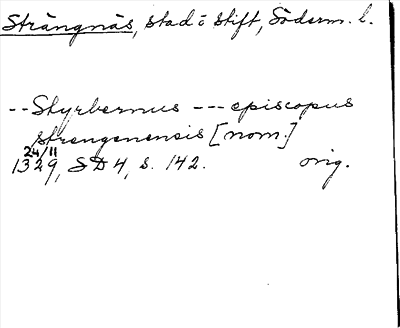 Strängnäs, stad o stift, Söderm. l.
-- Styrbernus --- episcopus
strengenensis [nom.]
24/11
1329, SD 4, s. 142. orig.